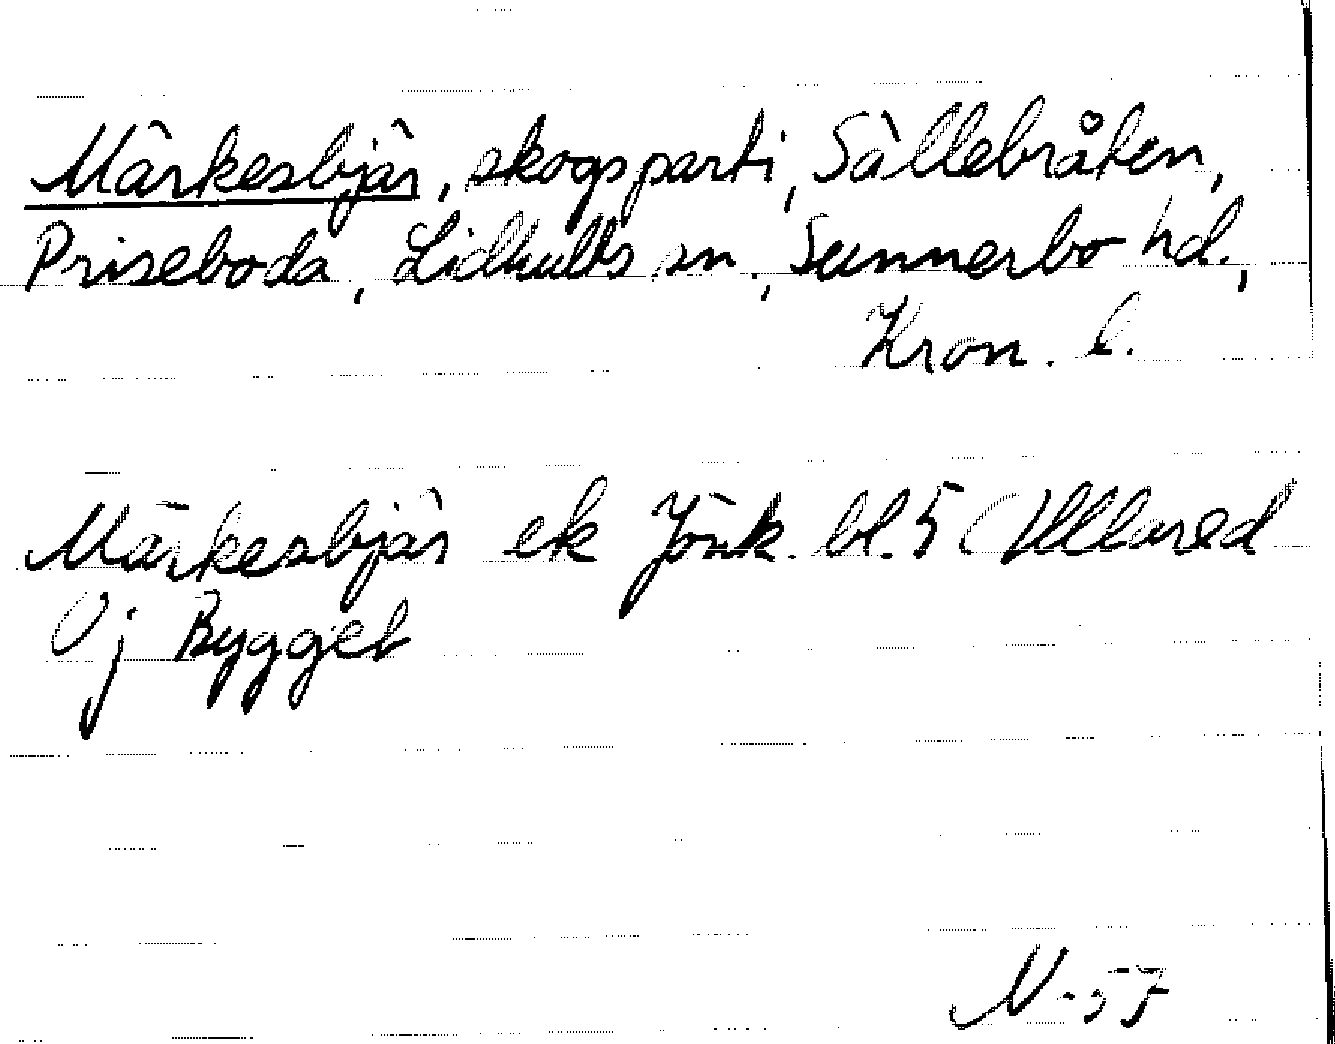 Märkesbjär, skogsparti, Sällebråten,
Priseboda, Lidhults sn., Sunnerbo hd.,
Kron. l.
Märkesbjär ek Jönk. bl. 5 (Ullared
Oj Bygget
N-57